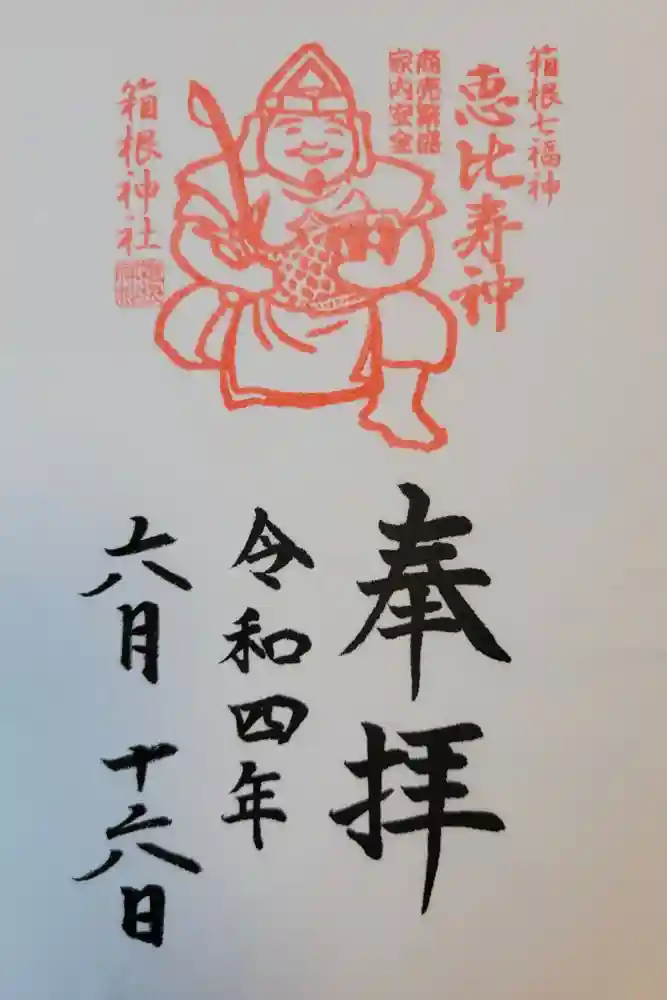 箱根七福神
恵比寿神
商売繁昌
家内安全
箱根神社
奉拝
令和四年
六月十六日